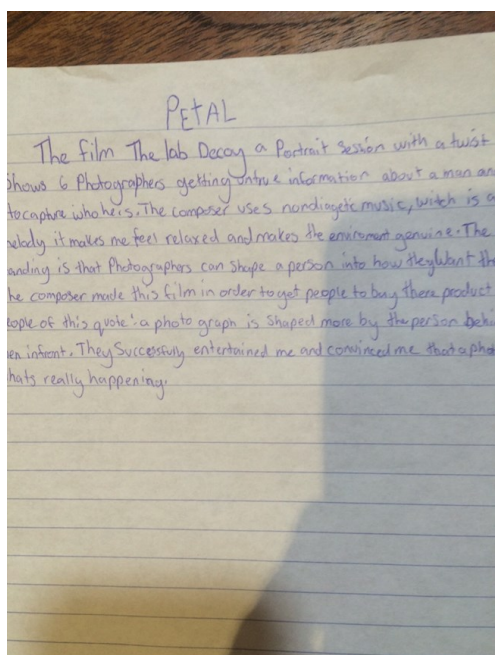 PETAL
The film The lab Decoy a Portrait Session with a twist
shows 6 Photographers getting untrue information about a man an
to capture who he is. The composer uses nondiagetic music, witch is a
melody it makes me feel relaxed and makes the enviroment genuine. The
anding is that Photographers can shape a person into how they want the
he composer made this film in order to get people to buy there product
eople of this quote: a photo graph is shaped more by the person behi
en infront. They Successfully entertained me and convinced me that a pho
hats really happening.